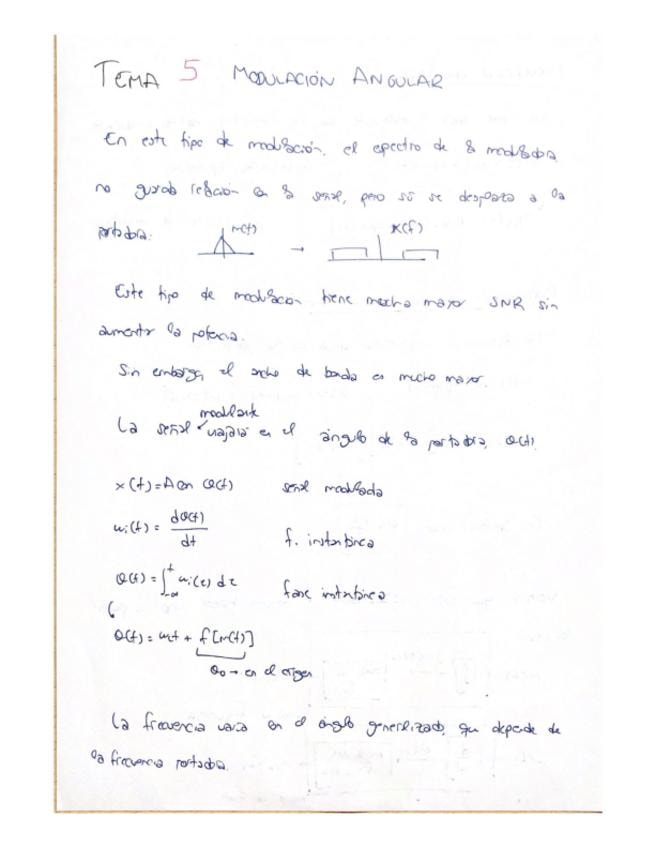 TEMA 5 MODULACIÓN ANGULAR
En este tipo de modulación, el espectro de la moduladora
no guarda relación con la señal, pero sí se desplaza a la
portadora.
m(f) → X(f)
Este tipo de modulación tiene mucha mayor SNR sin
aumentar la potencia.
Sin embargo, el ancho de banda es mucho mayor.
modulante
La señal viajará en el ángulo de la portadora, θ(t)
x(t) = A cos θ(t) señal modulada
ωi(t) = dθ(t)/dt f. instantánea
θ(t) = ∫_{-∞}^{t} ωi(τ) dτ fase instantánea
θ(t) = ωct + f[m(t)]
θ₀ → en el origen
La frecuencia varía en el ángulo generalizado, que depende de
la frecuencia portadora.